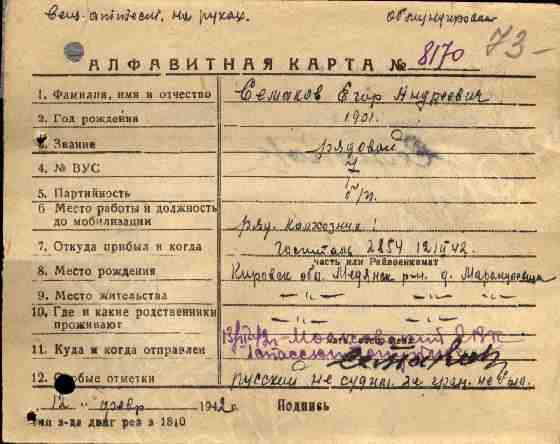 Вещ. аттест. на руках. обмундирован
73-
АЛФАВИТНАЯ КАРТА № 8170
1. Фамилия, имя и отчество Семаков Егор Андреевич
2. Год рождения 1901.
3. Звание рядовой
4. № ВУС 1
5. Партийность б/п.
6 Место работы и должность
до мобилизации ряд. колхозник
7. Откуда прибыл и когда Госпиталь 2854 12/XI 42
часть или Райвоенкомат
8. Место рождения Кировск. обл. Медянск р-н. д.
9. Место жительства -"- -"- -"-
10. Где и какие родственники
проживают -"- -"- -"-
11. Куда и когда отправлен Московский
12. Особые отметки Русский не судим за гран. не был.
12 ноябр 1942г Подпись
Тип з-да двиг рев з 1810